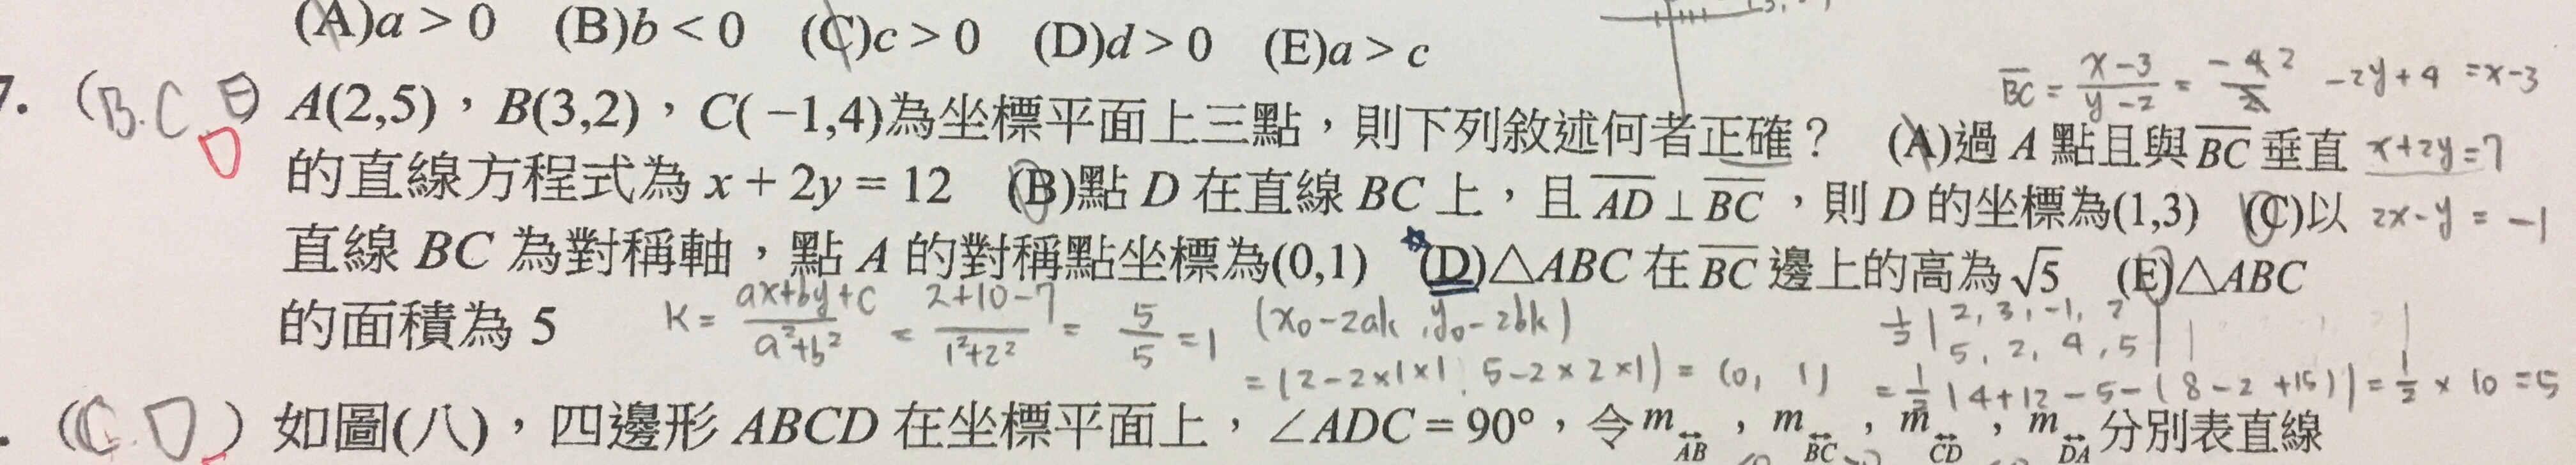 (A)a > 0 (B)b < 0 (C)c > 0 (D)d > 0 (E)a > c
7. (B.C.E) A(2,5)，B(3,2)，C(−1,4)為坐標平面上三點，則下列敘述何者正確？ (A)過 A 點且與 BC 垂直
D
BC = x−3 / y−2 = −4 2 / 2 −2y+4 = x−3
x+2y=7
的直線方程式為 x + 2y = 12 (B)點 D 在直線 BC 上，且 AD ⊥ BC，則 D 的坐標為(1,3) (C)以
2x−y = −1
直線 BC 為對稱軸，點 A 的對稱點坐標為(0,1) (D)△ABC 在 BC 邊上的高為√5 (E)△ABC
的面積為 5
K = ax+by+c / a²+b² = 2+10−7 / 1²+2² = 5/5 = 1 (x₀−2ak, y₀−2bk)
= (2−2×1×1, 5−2×2×1) = (0, 1)
1/2 | 2, 3, −1, 2
5, 2, 4, 5 |
= 1/2 |4+12−5−(8−2+15)| = 1/2 × 10 = 5
. (C.D) 如圖(八)，四邊形 ABCD 在坐標平面上，∠ADC = 90°，令 m AB，m BC，m CD，m DA 分別表直線